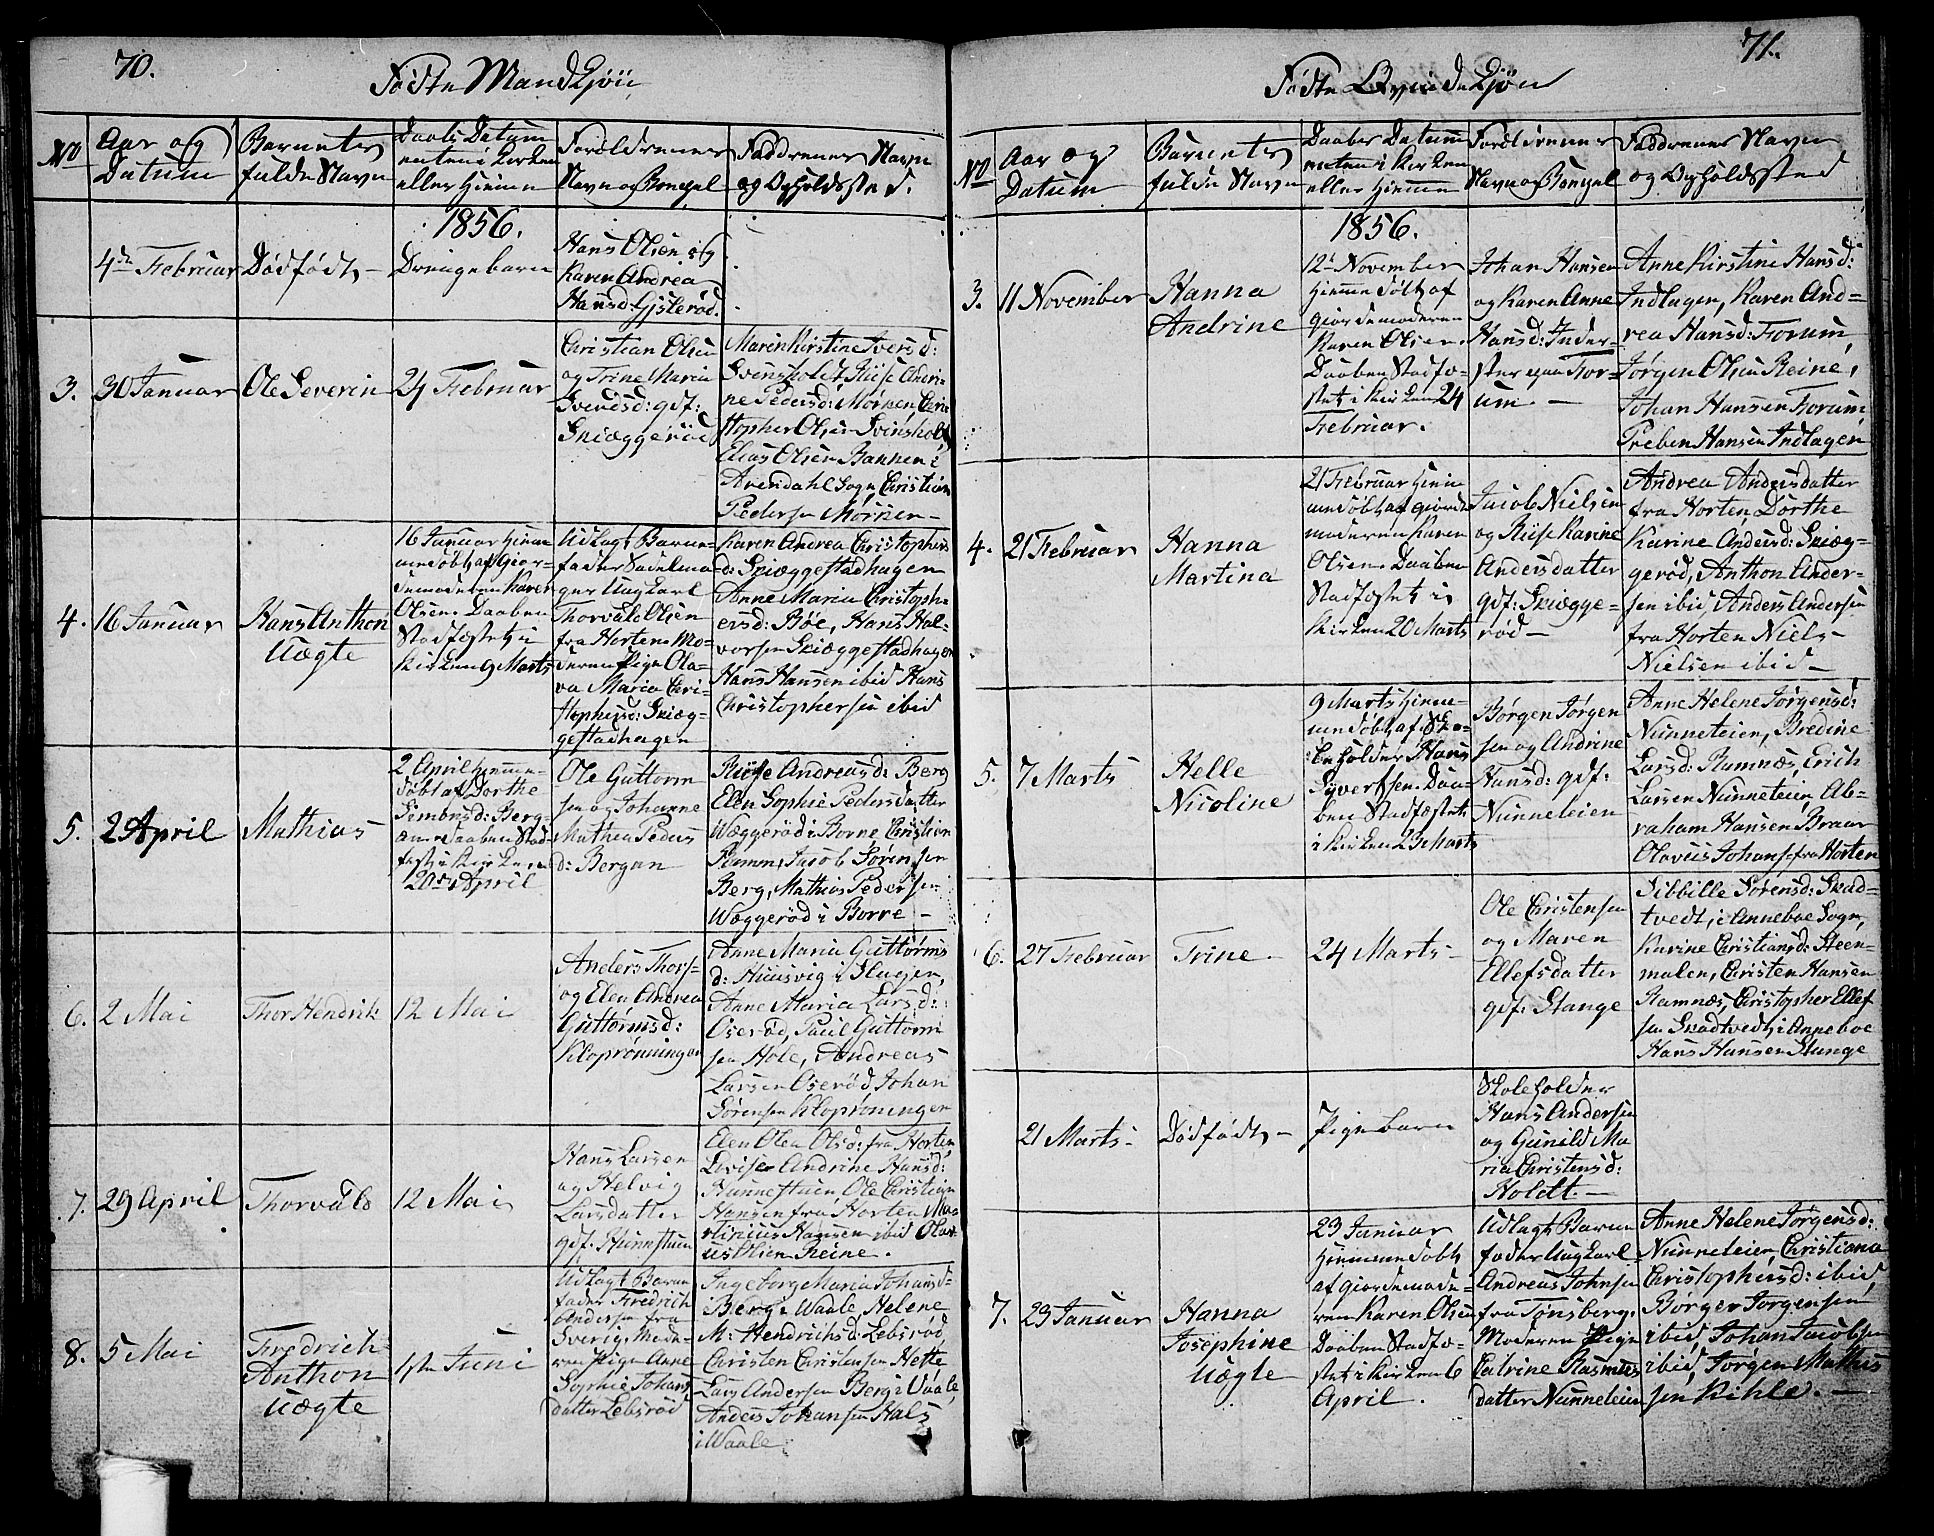 70.
Fødte Mandkjøn
No
Aar og
Datum
Barnets
fulde Navn
Daabs Datum
enten i Kirken
eller Hjemme
Forældrenes
Navn og Bopæl
Faddrenes Navn
og Opholdssted.
1856.
4de Februar
Dødfødt
Drengebarn
Hans Olsen og
Karen Andrea
Hansd: Gjsterød.
3.
30 Januar
Ole Severin
24 Februar
Christian Olsen
og Trine Maria
Svendsd: gdf:
Skiæggerød
Maren Kirstine Iversd:
Svinsholdt Riise Andri-
ne Pedersd: Mørken Chri-
stopher Olsen Svinsholt
Elias Olsen Bakken i
Arendahl Sogn Christian
Pedersen Mørken
4.
16 Januar
Hans Anthon
Uægte
16 Januar Hiem-
medøbt af Gjor-
demoderen Karen
Olsen. Daaben
Stadfæstet i
Kirken 9 Marts
Udlagt Barne-
fader Sadelma-
ger Ungkarl
Thorvald Olsen
fra Horten Mo-
deren Pige Ola-
va Maria Chri-
stophersd: Skiæg-
gestadhagen
Karen Andrea Christophers
d: Skiæggestadhagen
Anne Maria Christoph-
ersd: Bøe, Hans Hal-
vorsen Skiæggestadhagen
Hans Hansen ibid Hans
Christophersen ibid
5.
2 April
Mathias
2 April Hjemme-
døbt af Dorthe
Simonsd: Berg-
an Daaben Stad
fæst i Kirken
20de April
Ole Guttorm
sen og Johanne
Mathea Peders
d: Bergan
Riise Andreasd: Berg
Elen Sophie Pedersdatter
Wæggerød i Borre Christian
Ramm, Jacob Sørensen
Berg, Mathias Pedersen
Wæggerød i Borre
6.
2 Mai
Thor Hendrik
12 Mai
Anders Thors-
og Elen Andrea
Guttormsd:
Kloprønningen
Anne Maria Guttorms
d: Huusvig i Slagen,
Anne Maria Larsd:
Oserød, Paul Guttorm
sen Hole, Andreas
Larsen Oserød Johan
Sørensen Kloprøningen
7.
29 April
Thorvald
12 Mai
Hans Larsen
og Helvig
Larsdatter
gdf. Hunnstuen
Elen Olea Olsd: fra Horten
Lovise Andrine Hansd:
Hunnestuen, Ole Christian
Hansen fra Horten Ma-
rtinius Hansen ibid Olav-
us Thien Reine.
8.
5 Mai
Fredrich
Anthon
Uægte
1ste Juni
Udlagt Barne
fader Fredrich
Andersen fra
Sverig. Mode-
ren Pige Anne
Sophie Johans
datter Lebsrød
Ingeborg Maria Johansd-
Berg i Waale, Helene
M: Hendrichsd: Lebsrød,
Christen Christensen Hette
Lars Andersen Berg i Vaale,
Anders Johansen Hals
i Waale
71.
Fødte Qvindekjøn
No
Aar og
Datum
Barnets
fulde Navn
Daabs Datum
enten i Kirken
eller Hjemme
Forældrenes
Navn og Bopæl
Faddrenes Navn
og Opholdssted
1856.
3.
11 November
Hanna
Andrine
12te November
Hjemme døbt af
Giordemoderen
Karen Olsen.
Daaben Stadfæ-
stet i Kirken 24
Februar.
Johan Hansen
og Karen Anne
Hansd: Inder-
ster paa For-
um
Anne Kirstine Hansd:
Indlagen, Karen And-
rea Hansd: Forum,
Jørgen Olsen Reine,
Johan Hansen Forum
Preben Hansen Indlagen
4.
21 Februar
Hanna
Martina
21 Februar Hjem
medøbt af Giorde
moderen Karen
Olsen. Daaben
Stadfæstet i
Kirken 20 Marts
Jacob Nielsen
og Riise Karine
Andersdatter
gdf: Skiægge-
rød
Andrea Andersdatter
fra Horten Dorthe
Karine Andersd: Skiæg-
gerød, Anthon Ander-
sen ibid, Anders Andersen
fra Horten Niels
Nielsen ibid
5.
7 Marts
Helle
Nicoline
9 Marts Hjem-
medøbt af Sko-
leholder Hans
Syvertsen. Daa-
ben Stadfæstet
i Kirken 23 Marts
Børgen Jørgen
sen og Andrine
Hansd: gdf:
Nunneteien
Anne Helene Jørgensd:
Nunneteien, Bredine
Larsd: Ramnæs, Erich
Larsen Nunneteien Ab-
raham Hansen Braar
Olavus Johans: fra Horten
6.
27 Februar
Trine
24 Marts
Ole Christensen
og Maren
Ellefsdatter
gdf: Stange
Sibbille Sørensd: Skad-
tvedt, i Anneboe Sogn,
Karine Christiansd: Steen-
malen, Christen Hansen
Ramnæs, Christopher Ellef
sen Skadtvedt i Anneboe
Hans Hansen Stange
21 Marts
Dødfødt
Pigebarn
Skoleholder
Hans Andersen
og Gunild Ma
ria Christensd:
Holdt.
7.
23 Januar
Hanna
Josephine
Uægte
23 Januar
Hjemmedøbt
af Giordemode-
ren Karen Olsen
Daaben Stadfæ-
stet i Kirken 6
April.
Udlagt Barne
fader Ungkarl
Andreas Johnsen
fra Tønsberg,
Moderen Pige
Catrine Rasmus
datter Nunneteien
Anne Helene Jørgensd:
Nunneteien, Christiana
Christophersd: ibid
Børger Jørgensen
ibid, Johan Jacobsen
ibid, Jørgen Mathis
sen Kihle.